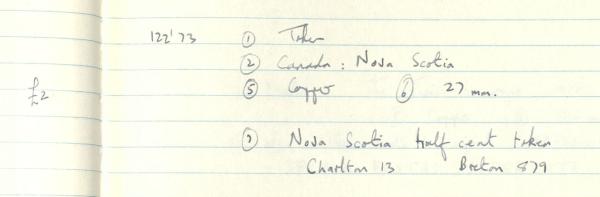 122'73 ① Token
② Canada : Nova Scotia
£2 ⑤ Copper ⑥ 27 mm.
⑦ Nova Scotia Half cent token
Charlton 13 Breton 879